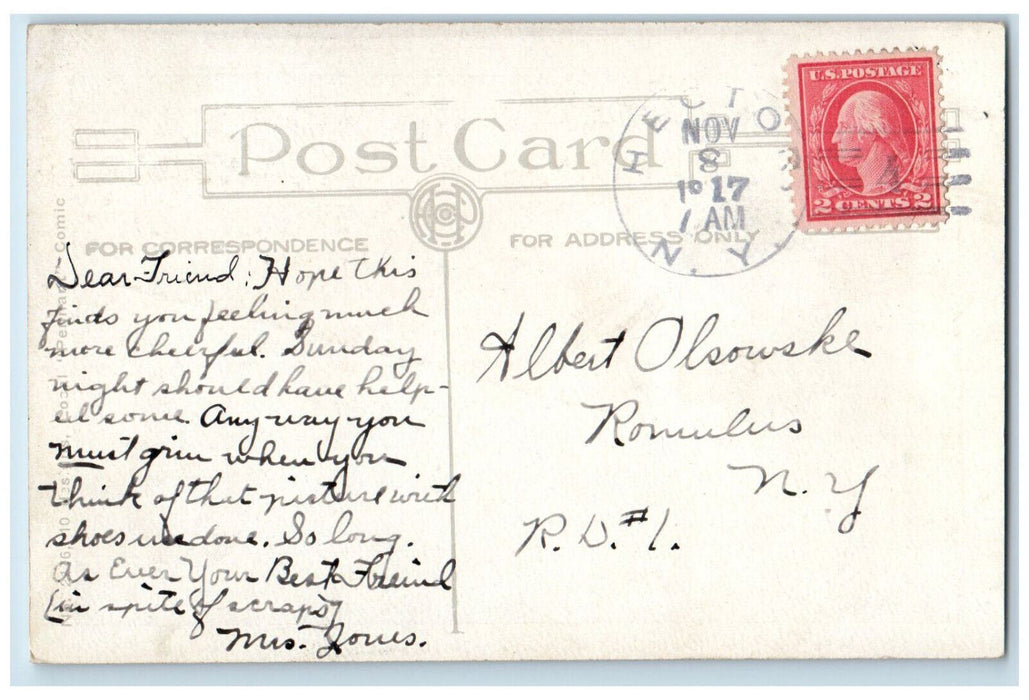 U.S. POSTAGE
2 CENTS 2
HECTO
NOV
8
1917
7 AM
N.Y.
Post Card
FOR CORRESPONDENCE
FOR ADDRESS ONLY
Comic
Dear Friend: Hope this
finds you feeling much
more cheerful. Sunday
night should have help-
ed some. Any-way-you
must grin when you
think of that picture with
shoes undone. So long.
As Ever Your Best Freind
(in spite of scraps)
Mrs. Jones.
Albert Olsowske
Romulus
N.Y
R.D.#1.